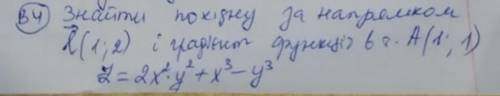 В4) Знайти похідну за напрямком
ℓ(1;2) і градієнт функції в т. А(1;1)
Z = 2x²·y² + x³ - y³